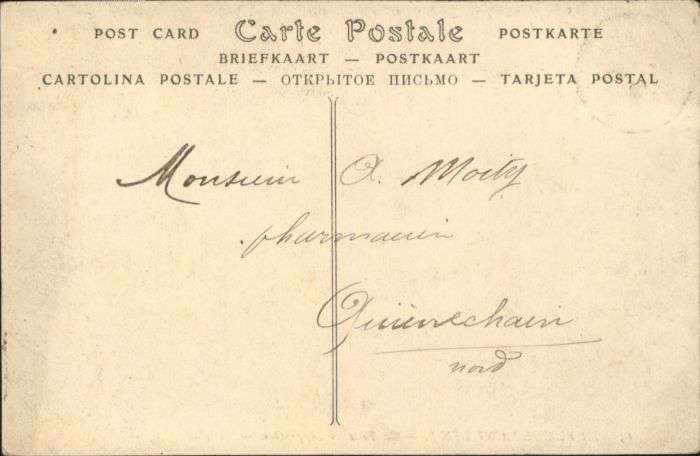 POST CARD Carte Postale POSTKARTE
BRIEFKAART — POSTKAART
CARTOLINA POSTALE — ОТКРЫТОЕ ПИСЬМО — TARJETA POSTAL
Monsieur A. Moity
pharmacien
Quiévrechain
nord